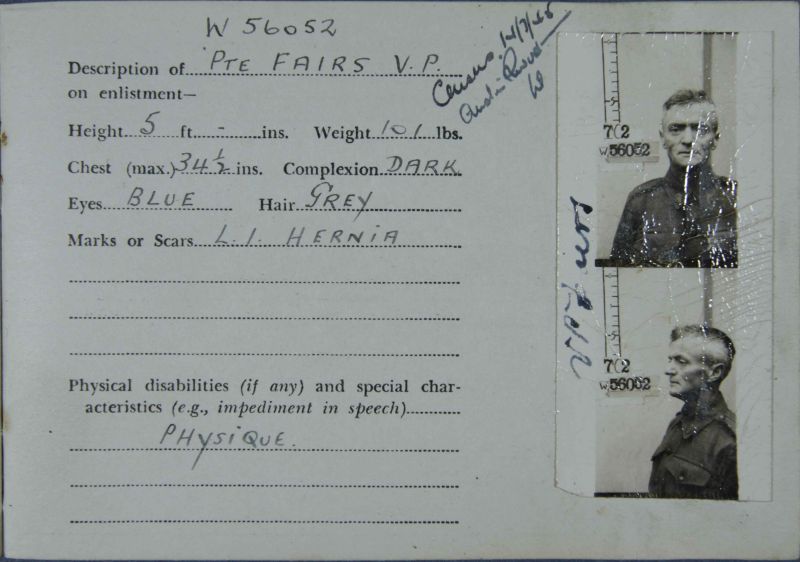 W 56052
Census. 14/7/45
Description of PTE FAIRS V.P.
on enlistment—
Height 5 ft. - ins. Weight 101 lbs.
Chest (max.) 34½ ins. Complexion DARK
Eyes BLUE Hair GREY
Marks or Scars L.I. HERNIA
Physical disabilities (if any) and special char-
acteristics (e.g., impediment in speech)
PHYSIQUE.
702
W56052
702
W56052